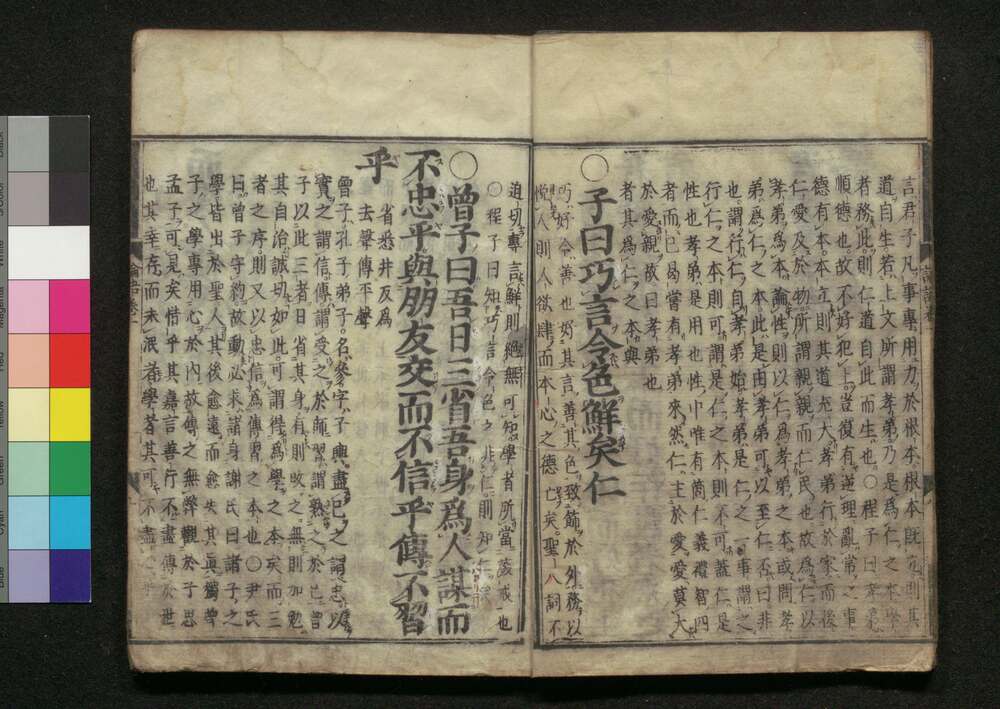 言君子凡事專用力於根本根本既立則其
道自生若上文所謂孝弟乃是爲仁之本學
者務此則仁道自此而生也○程子曰孝弟
順德也故不好犯上豈復有逆理亂常之事
德有本本立則其道充大孝弟行於家而後
仁愛及於物所謂親親而仁民也故爲仁以
孝弟爲本論性則以仁爲孝弟之本或問孝
弟爲仁之本此是由孝弟可以至仁否曰非
也謂行仁自孝弟始孝弟是仁之一事謂之
行仁之本則可謂是仁之本則不可蓋仁是
性也孝弟是用也性中唯有箇仁義禮智四
者而已曷嘗有孝弟來然仁主於愛愛莫大
於愛親故曰孝弟也
者其爲仁之本與
○子曰巧言令色鮮矣仁
巧好令善也好其言善其色致飾於外務以
悅人則人欲肆而本心之德亡矣聖人詞不
迫切專言鮮則絕無可知學者所當深戒也
○程子曰知巧言令色之非仁則知
○曾子曰吾日三省吾身爲人謀而
不忠乎與朋友交而不信乎傳不習
乎
省悉井反爲
去聲傳平聲
曾子孔子弟子名參字子輿盡已之謂忠以
實之謂信傳謂受之於師習謂熟之於已曾
子以此三者日省其身有則改之無則加勉
其自治誠切如此可謂得爲學之本矣而三
者之序則又以忠信爲傳習之本也○尹氏
曰曾子守約故動必求諸身謝氏曰諸子之
學皆出於聖人其後愈遠而愈失其眞獨曾
子之學專用心於內故傳之無弊觀於子思
孟子可見矣惜乎其嘉言善行不盡傳於世
也其幸存而未泯者學者其可不盡心乎